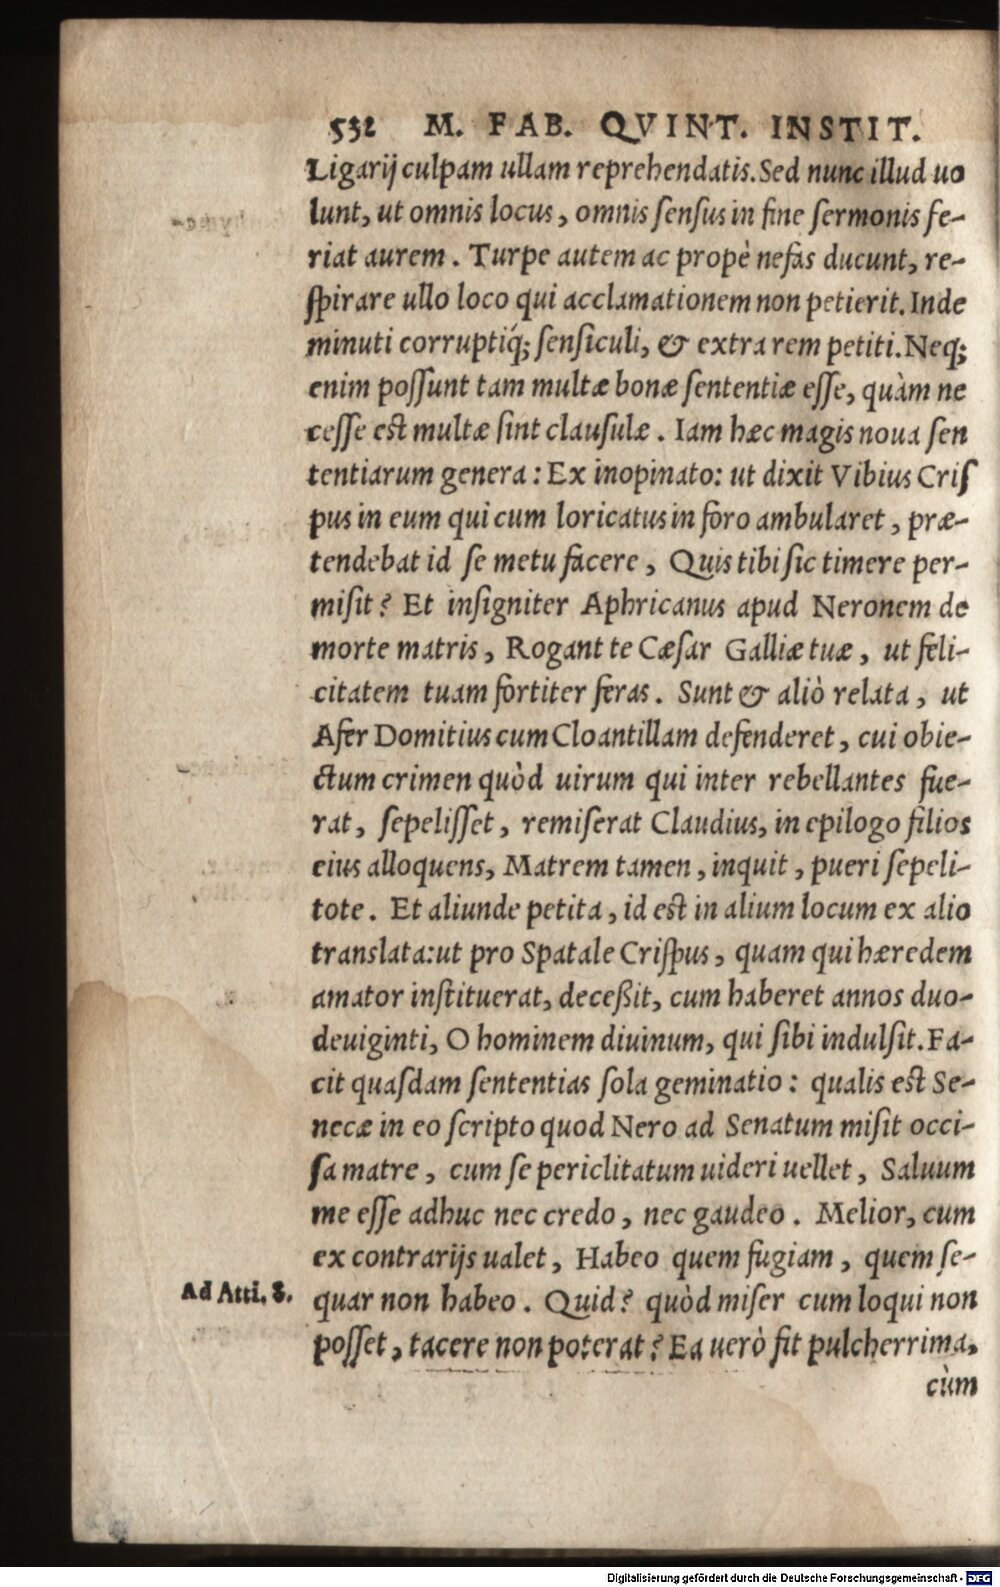 532 M. FAB. QVINT. INSTIT.
Ligarij culpam ullam reprehendatis. Sed nunc illud uo
lunt, ut omnis locus, omnis sensus in fine sermonis fe-
riat aurem. Turpe autem ac propè nefas ducunt, re-
spirare ullo loco qui acclamationem non petierit. Inde
minuti corruptiq́; sensiculi, & extra rem petiti. Neq;
enim possunt tam multæ bonæ sententiæ esse, quàm ne
cesse est multæ sint clausulæ. Iam hæc magis noua sen
tentiarum genera: Ex inopinato: ut dixit Vibius Cris
pus in eum qui cum loricatus in foro ambularet, præ-
tendebat id se metu facere, Quis tibi sic timere per-
misit? Et insigniter Aphricanus apud Neronem de
morte matris, Rogant te Cæsar Galliæ tuæ, ut feli-
citatem tuam fortiter feras. Sunt & aliò relata, ut
Afer Domitius cum Cloantillam defenderet, cui obie-
ctum crimen quòd uirum qui inter rebellantes fue-
rat, sepelisset, remiserat Claudius, in epilogo filios
eius alloquens, Matrem tamen, inquit, pueri sepeli-
tote. Et aliunde petita, id est in alium locum ex alio
translata: ut pro Spatale Crispus, quam qui hæredem
amator instituerat, deceßit, cum haberet annos duo-
deuiginti, O hominem diuinum, qui sibi indulsit. Fa-
cit quasdam sententias sola geminatio: qualis est Se-
necæ in eo scripto quod Nero ad Senatum misit occi-
sa matre, cum se periclitatum uideri uellet, Saluum
me esse adhuc nec credo, nec gaudeo. Melior, cum
ex contrarijs ualet, Habeo quem fugiam, quem se-
Ad Atti. 8.
quar non habeo. Quid? quòd miser cum loqui non
posset, tacere non poterat? Ea uerò fit pulcherrima,
cùm
Digitalisierung gefördert durch die Deutsche Forschungsgemeinschaft - DFG